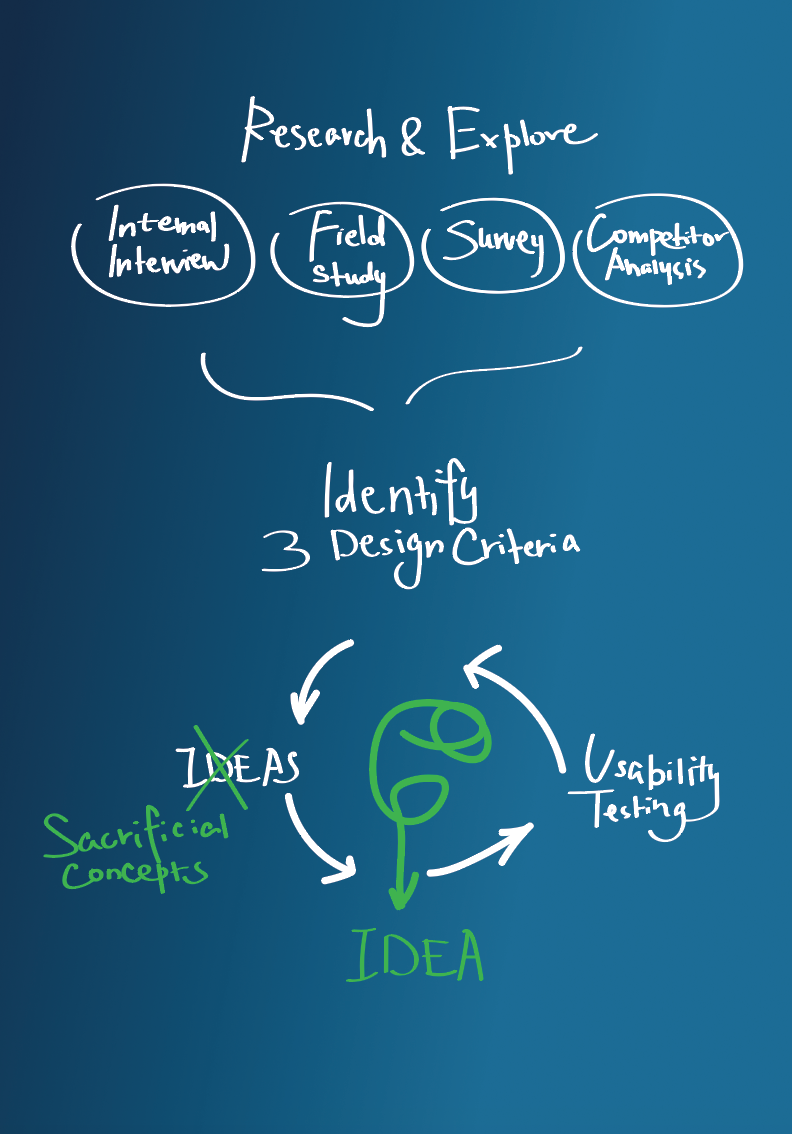 Research & Explore
Internal
Interview
Field
Study
Survey
Competitor
Analysis
Identify
3 Design Criteria
IDEAS
Sacrificial
Concepts
Usability
Testing
IDEA